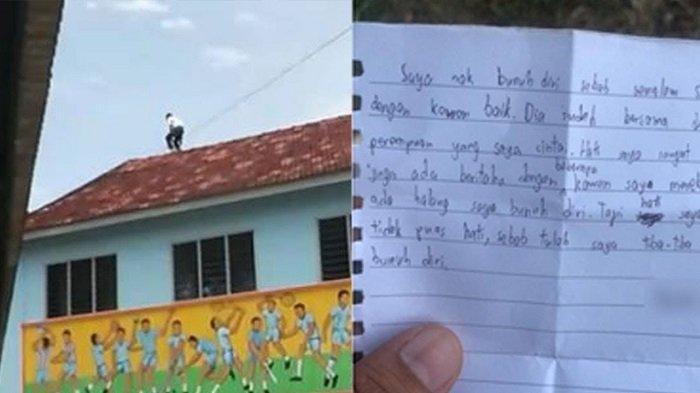 Saya nak bunuh diri sebab semalam
dengan kawan baik. Dia sudah bersama
perempuan yang saya cintai. Hati saya sangat
juga ada beritahu dengan beberapa kawan saya
ada halang saya bunuh diri. Tapi hati
tidak puas hati, sebab itulah saya tiba-tiba
bunuh diri.